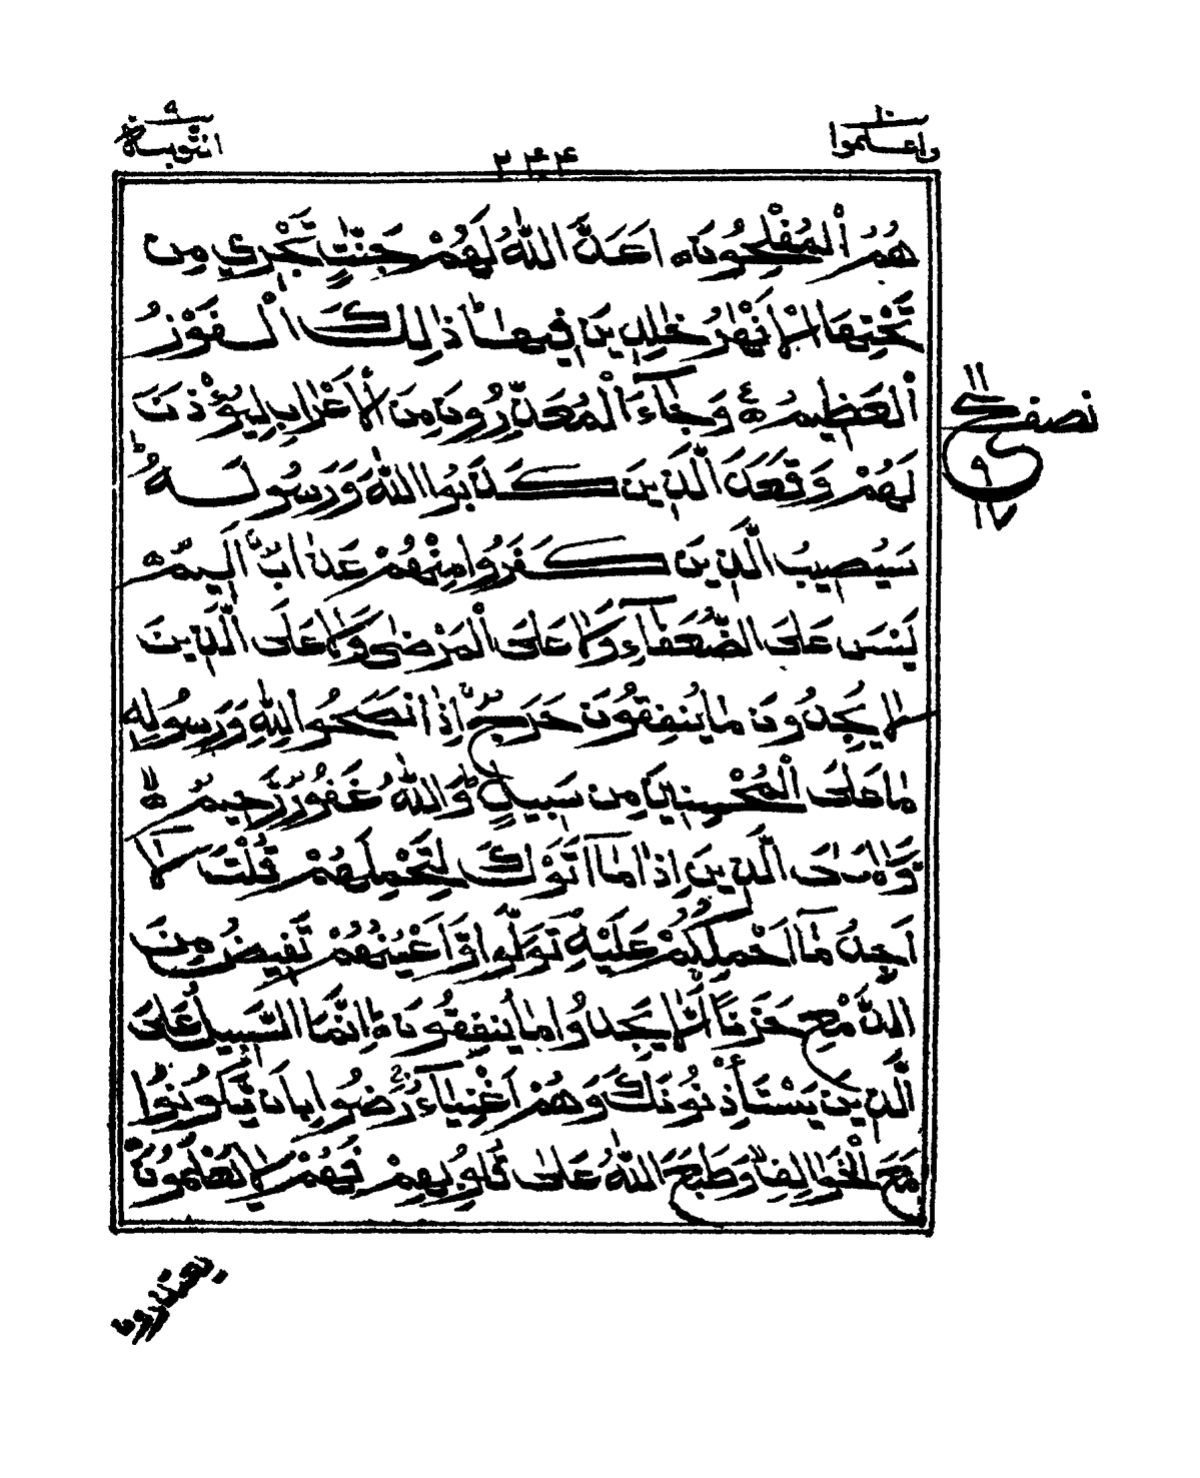 واعلموا ١٠
٢٤٤
التوبة ٩
هُمُ الْمُفْلِحُونَ ۝ اَعَدَّ اللّٰهُ لَهُمْ جَنّٰتٍ تَجْرِي مِن
تَحْتِهَا الْاَنْهٰرُ خٰلِدِينَ فِيهَا ؕ ذٰلِكَ الْفَوْزُ
الْعَظِيمُ ۝ ع وَجَآءَ الْمُعَذِّرُونَ مِنَ الْأَعْرَابِ لِيُؤْذَنَ
لَهُمْ وَقَعَدَ الَّذِينَ كَذَبُوا اللّٰهَ وَرَسُولَهُ ؕ
سَيُصِيبُ الَّذِينَ كَفَرُوا مِنْهُمْ عَذَابٌ اَلِيمٌ ۝
لَيْسَ عَلَى الضُّعَفَآءِ وَلَا عَلَى الْمَرْضٰى وَلَا عَلَى الَّذِينَ
لَا يَجِدُونَ مَا يُنفِقُونَ حَرَجٌ اِذَا نَصَحُوا لِلّٰهِ وَرَسُولِهِ
مَا عَلَى الْمُحْسِنِينَ مِن سَبِيلٍ ؕ وَاللّٰهُ غَفُورٌ رَّحِيمٌ ۝
وَّلَا عَلَى الَّذِينَ اِذَا مَآ اَتَوْكَ لِتَحْمِلَهُمْ قُلْتَ لَآ
اَجِدُ مَآ اَحْمِلُكُمْ عَلَيْهِ تَوَلَّوا وَّاَعْيُنُهُمْ تَفِيضُ مِنَ
الدَّمْعِ حَزَنًا اَلَّا يَجِدُوا مَا يُنفِقُونَ ۝ اِنَّمَا السَّبِيلُ عَلَى
الَّذِينَ يَسْتَأْذِنُونَكَ وَهُمْ اَغْنِيَآءُ رَضُوا بِاَن يَّكُونُوا
مَعَ الْخَوَالِفِ وَطَبَعَ اللّٰهُ عَلٰى قُلُوبِهِمْ فَهُمْ لَا يَعْلَمُونَ
نصف
ع
٩
١٧
يعتذرون